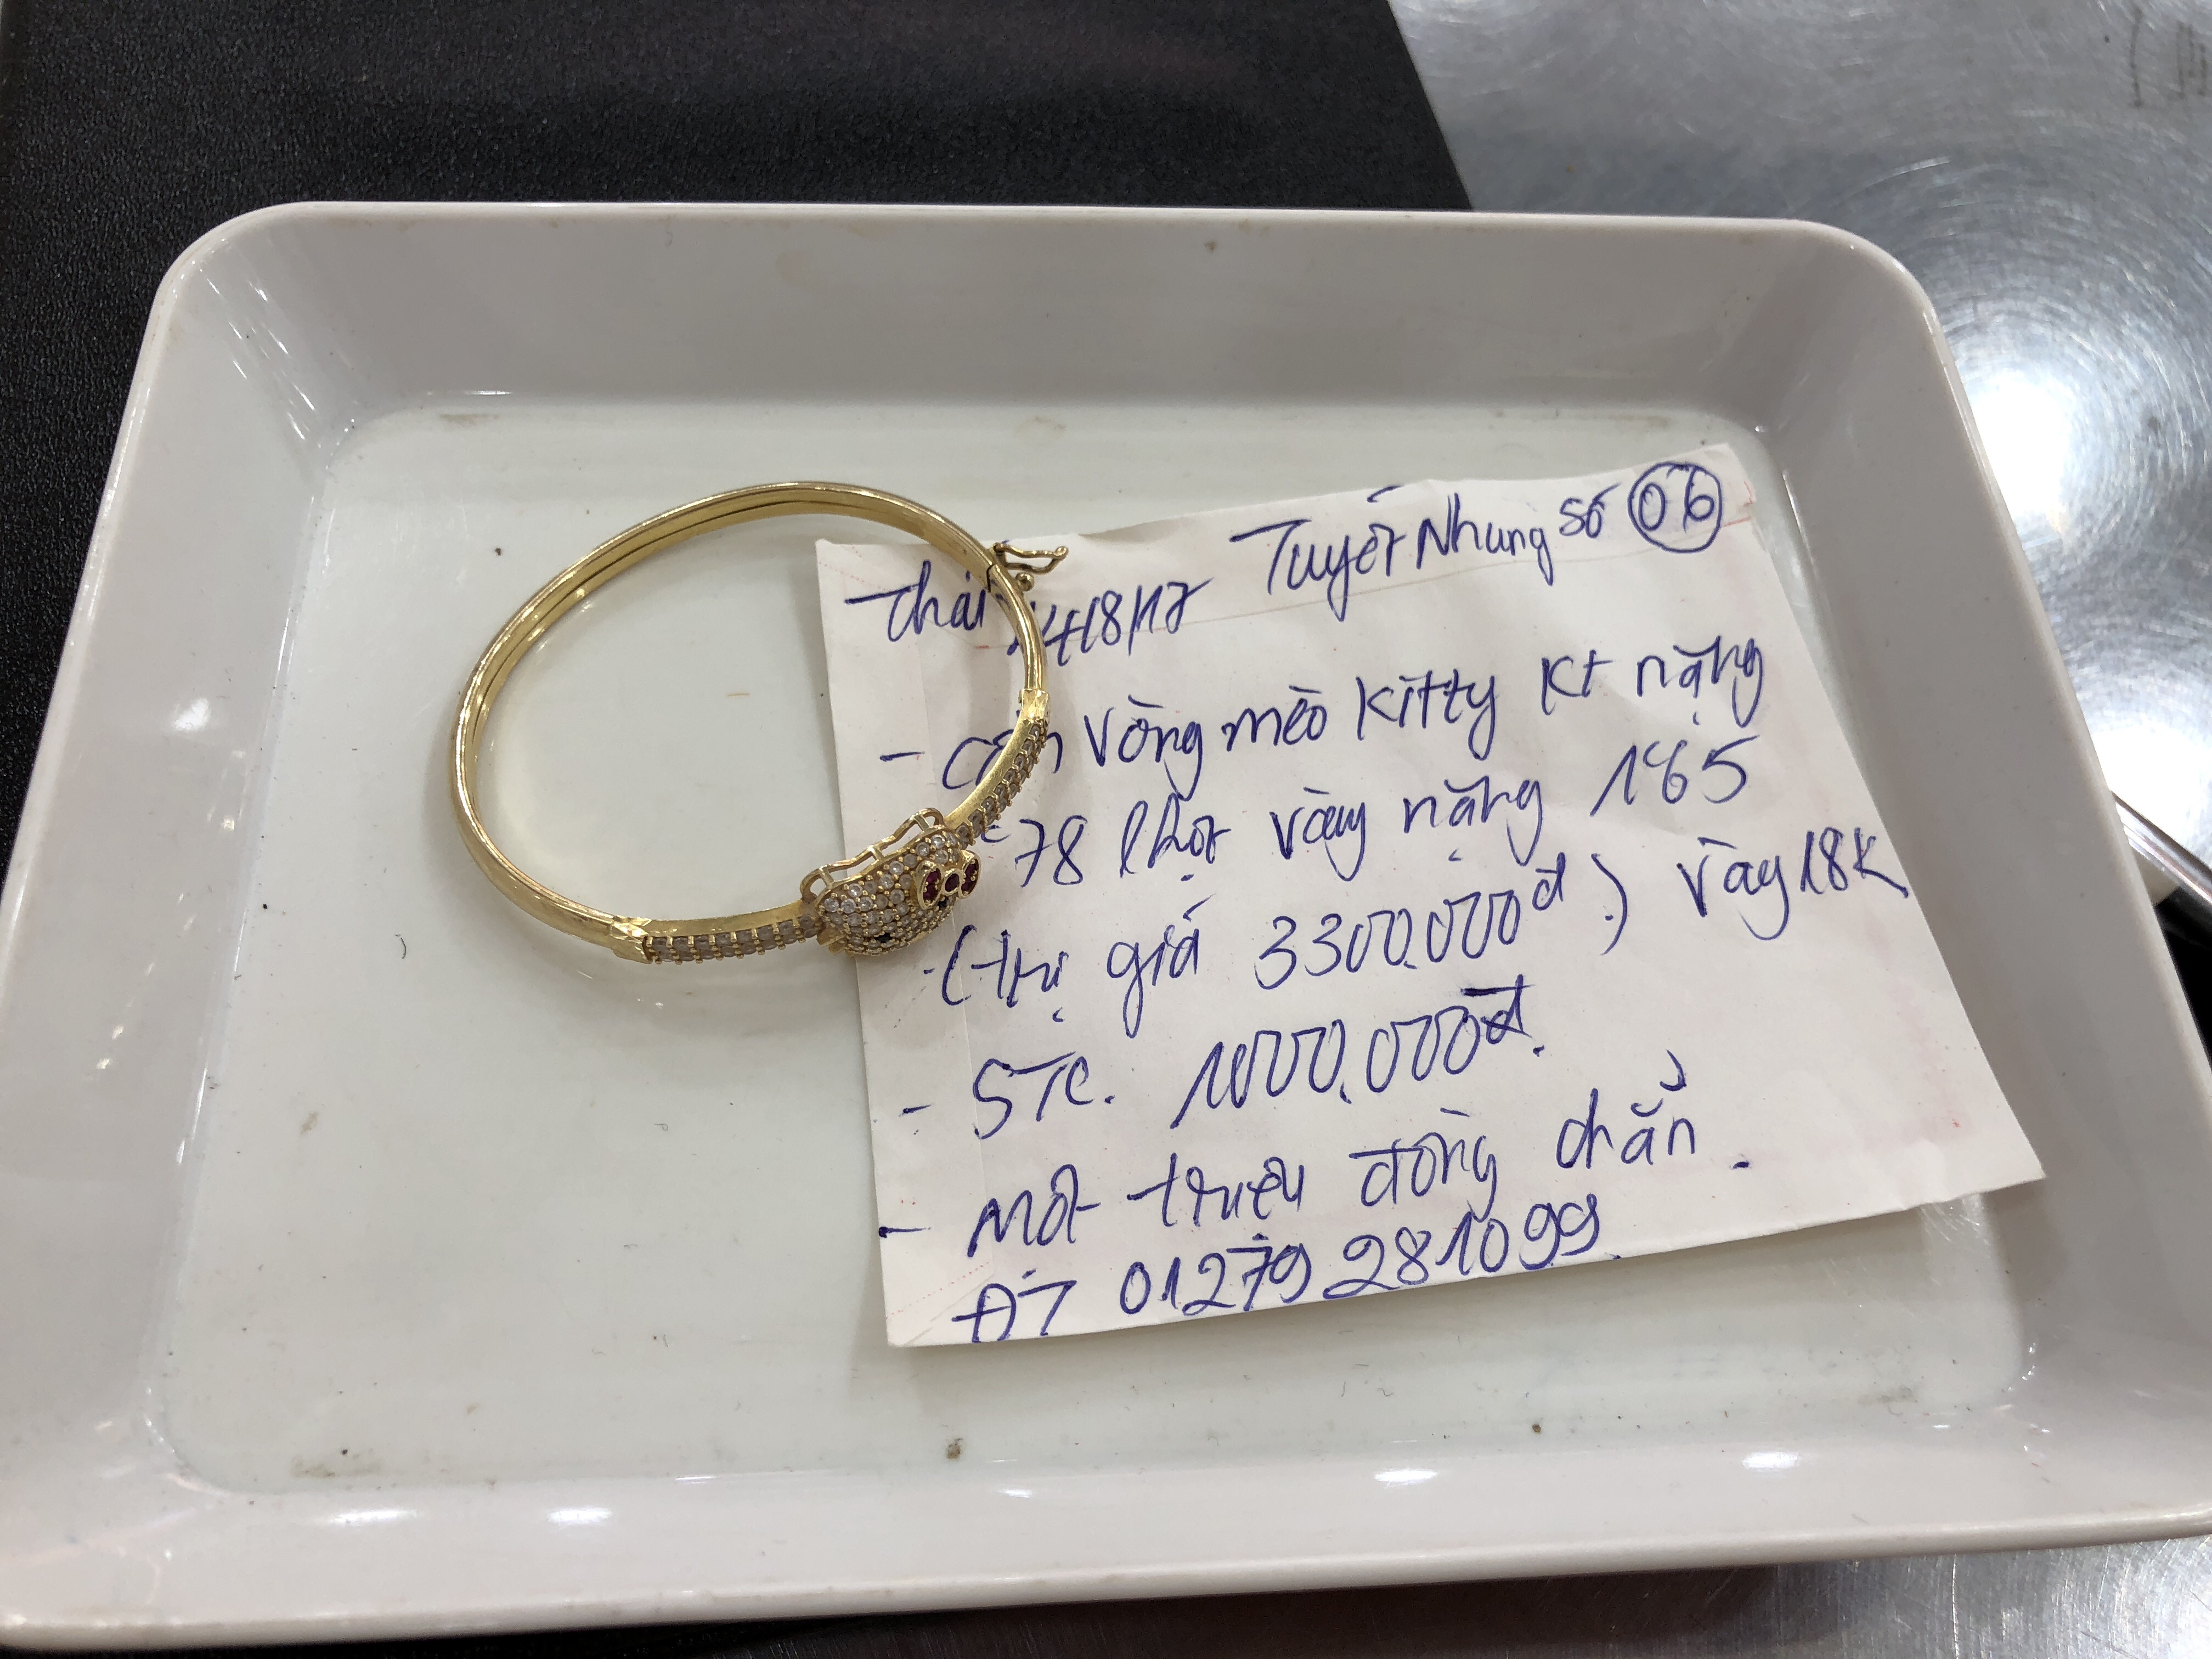 Tuyết Nhung số 06
Thái 14/8/17
- Cầm vòng mèo Kitty KT nặng
78 lhột vàng nặng 165
(trị giá 3300.000đ) vàng 18K
- STC. 1000.000đ.
- Một triệu đồng chẵn.
ĐT 01279281099.